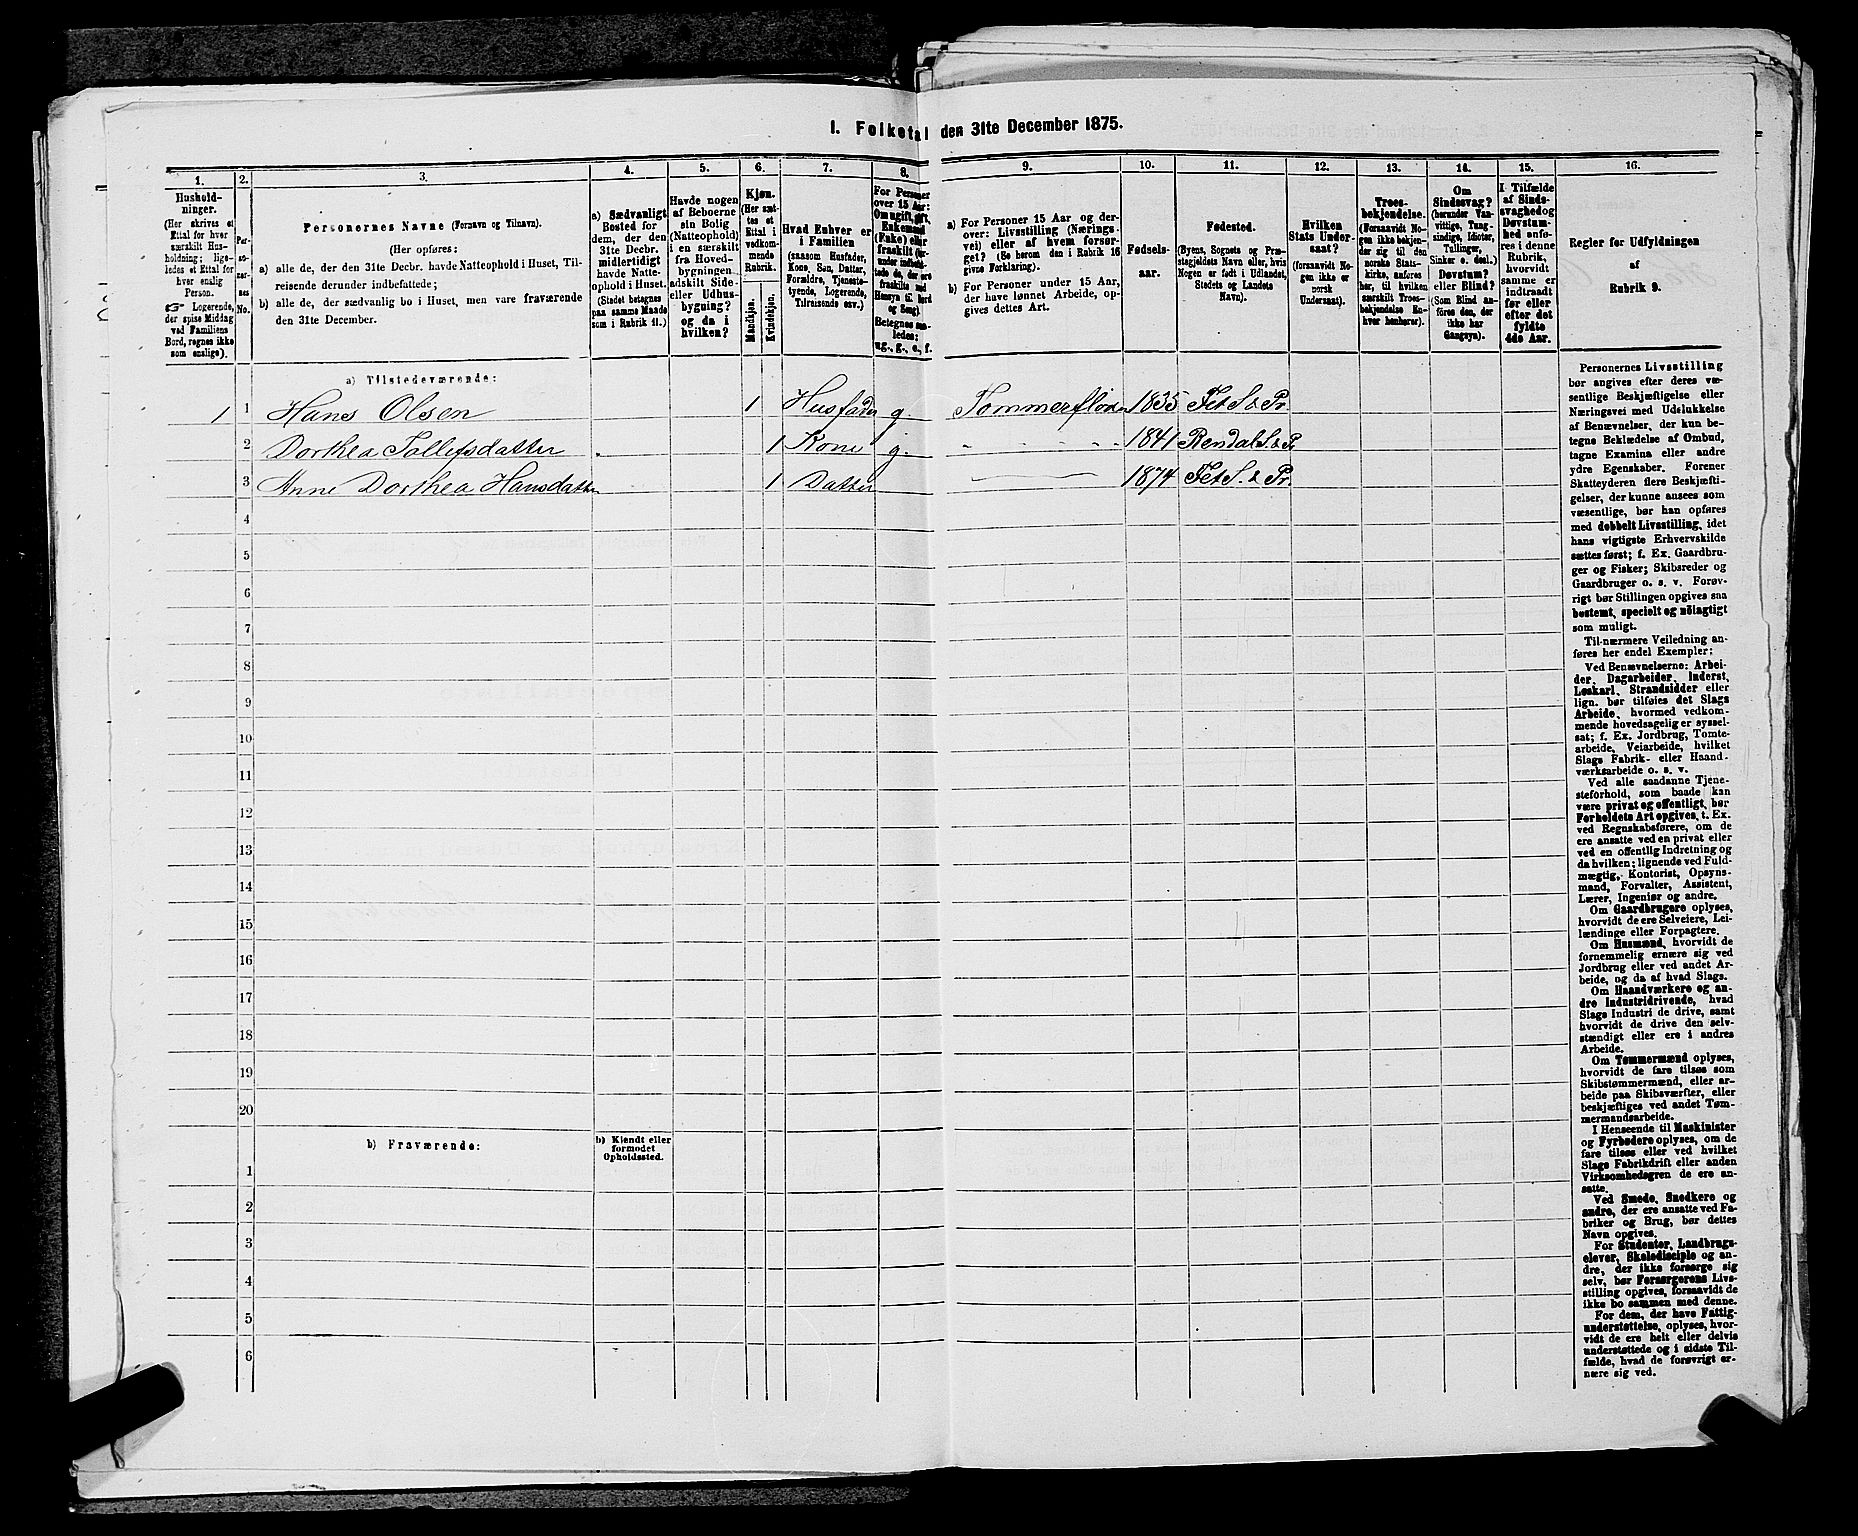 I. Folketal den 31te December 1875.
1. 2. 3. 4. 5. 6. 7. 8. 9. 10. 11. 12. 13. 14. 15. 16.
Hushold-
ninger.
(Her skrives et
Ettal for hver
særskilt Hus-
holdning; lige-
ledes et Ettal for
hver enslig
Person.
☞ Logerende,
der spise Middag
ved Familiens
Bord, regnes ikke
som enslige).
Per-
so-
ner-
nes
No.
Personernes Navne (Fornavn og Tilnavn).
(Her opføres:
a) alle de, der den 31te Decbr. havde Natteophold i Huset, Til-
reisende derunder indbefattede;
b) alle de, der sædvanlig bo i Huset, men vare fraværende
den 31te December.
a) Sædvanligt
Bosted for
dem, der den
31te Decbr.
midlertidigt
havde Natte-
ophold i Huset.
(Stedet betegnes
paa samme Maade
som i Rubrik 11.)
Havde nogen
af Beboerne
sin Bolig
(Natteophold)
i en særskilt
fra Hoved-
bygningen
adskilt Side-
eller Udhus-
bygning?
og da i
hvilken?
Kjøn.
(Her sæt-
tes et
Ettal i
vedkom-
mende
Rubrik.
Mandkjøn.
Kvindekjøn.
Hvad Enhver er
i Familien
(saasom Husfader,
Kone, Søn, Datter,
Forældre, Tjeneste-
tyende, Logerende,
Tilreisende osv.)
For Personer
over 15 Aar:
Om ugift, gift,
Enkemand
(Enke) eller
fraskilt
Betegnes saa-
ledes:
ug., g., e., f.
a) For Personer 15 Aar og der-
over: Livsstilling (Nærings-
vei) eller af hvem forsør-
get? (Se herom den i Rubrik 16
givne Forklaring).
b) For Personer under 15 Aar,
der have lønnet Arbeide, op-
gives dettes Art.
Fødsels-
aar.
Fødested.
(Byens, Sognets og Præ-
stegjeldets Navn eller, hvis
Nogen er født i Udlandet,
Stedets og Landets
Navn).
Hvilken
Stats Under-
saat?
(forsaavidt No-
gen ikke er
norsk
Undersaat).
Troes-
bekjendelse.
(Forsaavidt No-
gen ikke bekjen-
der sig til den
norske Stats-
kirke, anføres
her, til hvilken
særskilt Troes-
bekjendelse En-
hver henhører).
Om
Sindssvag?
(herunder Van-
vittige, Tung-
sindige, Idioter,
Tullinger,
Sinker o. desl.)
Døvstum?
eller Blind?
(Som Blind an-
føres den, der
ikke har
Gangsyn).
I Tilfælde
af Sinds-
svaghed og
Døvstum-
hed anfø-
res i denne
Rubrik,
hvorvidt
samme er
indtraadt
før eller
efter det
fyldte
4de Aar.
Regler for Udfyldningen
af
Rubrik 9.
a) Tilstedeværende:
1 1 Hans Olsen 1 Husfader g. Tømmerfløder 1835 Fet S. & Pr.
2 Dorthea Tollefsdatter 1 Kone g. " " " " 1841 Rendal S. & Pr.
3 Anne Dorthea Hansdatter 1 Datter — 1874 Fet S. & Pr.
4
5
6
7
8
9
10
11
12
13
14
15
16
17
18
19
20
b) Fraværende:
b) Kjendt eller
formodet
Opholdssted.
1
2
3
4
5
6
Personernes Livsstilling
bør angives efter deres væ-
sentlige Beskjæftigelse eller
Næringsvei med Udslukkelse
af Benævnelser, der kun be-
tegne Beklædelse af Ombud,
tagne Examina eller andre
ydre Egenskaber. Forener
Skatteyderen flere Beskjæfti-
gelser, der kunne ansees som
væsentlige, bør han opføres
med dobbelt Livsstilling, idet
hans vigtigste Erhvervskilde
sættes først; f. Ex. Gaardbru-
ger og Fisker; Skibsreder og
Gaardbruger o. s. v. Forøv-
rigt bør Stillingen opgives saa
bestemt, specielt og nöiagtigt
som muligt.
Til nærmere Veiledning an-
føres her endel Exempler:
Ved Benævnelserne: Arbei-
der, Dagarbeider, Inderst,
Løskarl, Strandsidder eller
lign. bør tilføies det Slags
Arbeide, hvormed vedkom-
mende hovedsagelig er syssel-
sat; f. Ex. Jordbrug, Tomte-
arbeide, Veiarbeide, hvilket
Slags Fabrik- eller Haand-
værksarbeide o. s. v.
Ved alle saadanne Tjene-
steforhold, som baade kan
være privat og offentligt, bør
Forholdets Art opgives, t. Ex.
ved Regnskabsførere, om de
ere ansatte ved en privat eller
ved en offentlig Indretning og
da hvilken; lignende ved Fuld-
mægtig, Kontorist, Opsyns-
mand, Forvalter, Assistent,
Lærer, Ingeniør og andre.
Om Gaardbrugere oplyses,
hvorvidt de ere Selveiere, Lei-
lændinge eller Forpagtere.
Om Husmænd, hvorvidt de
fornemmelig ernære sig ved
Jordbrug eller ved andet Ar-
beide, og da af hvad Slags.
Om Haandværkere og an-
dre Industridrivende, hvad
Slags Industri de drive, samt
hvorvidt de drive den selv-
stændigt eller ere i andres
Arbeide.
Om Tømmermænd oplyses,
hvorvidt de fare tilsøs som
Skibstømmermænd, eller ar-
beide paa Skibsværfter, eller
beskjæftiges ved andet Tøm-
mermandsarbeide.
I Henseende til Maskinister
og Fyrbødere oplyses, om de
fare tilsøs eller ved hvilket
Slags Fabrikdrift eller anden
Virksomhedsgren de ere an-
satte.
Ved Smede, Snedkere og
andre, der ere ansatte ved Fa-
briker og Brug, bør dettes
Navn opgives.
For Studenter, Landbrugs-
elever, Skoledisciple og an-
dre, der ikke forsørge sig
selv, bør Forsørgerens Livs-
stilling opgives, forsaavidt de
ikke bo sammen med denne.
For dem, der have Fattig-
understøttelse, oplyses, hvor-
vidt de ere helt eller delvis
understøttede og i sidste Til-
fælde, hvad de forøvrigt er-
nære sig ved.